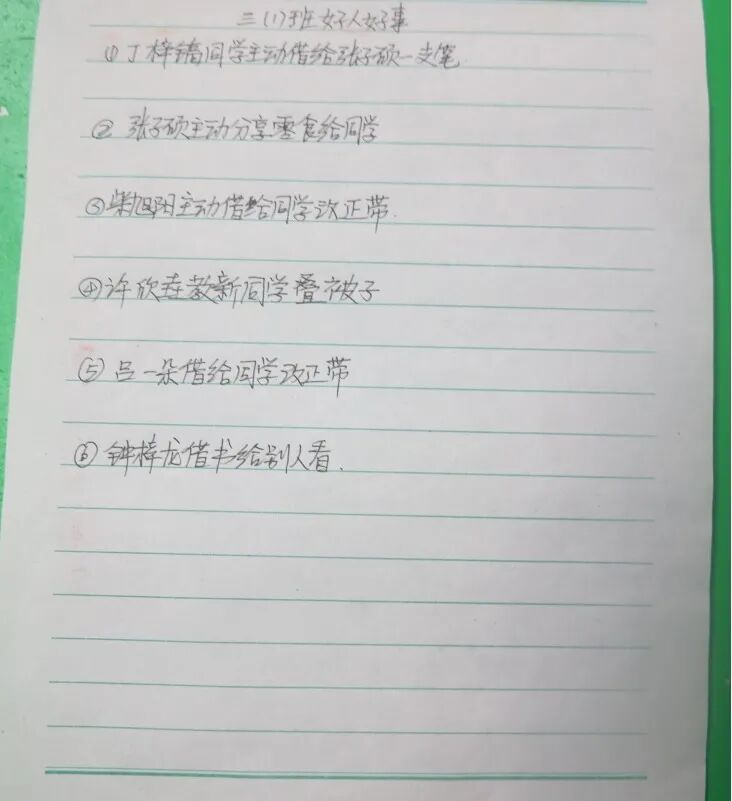 三(1)班好人好事
①丁梓镐同学主动借给张子硕一支笔
② 张子硕主动分享零食给同学
③柴旭阳主动借给同学改正带.
④许欣垚教新同学叠被子
⑤ 吕一朵借给同学改正带
⑥ 钟梓龙借书给别人看.